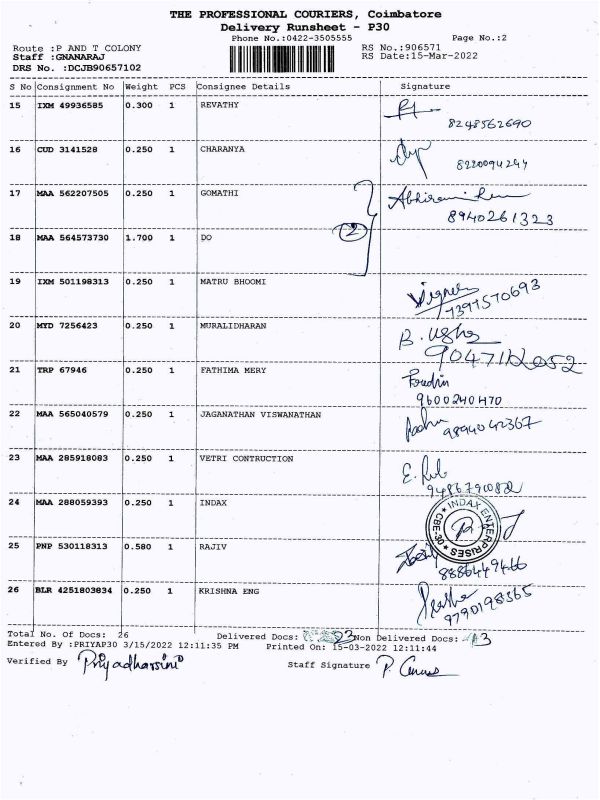 THE PROFESSIONAL COURIERS, Coimbatore
Delivery Runsheet - P30
Phone No.:0422-3505555 Page No.:2
Route :P AND T COLONY RS No.:906571
Staff :GNANARAJ RS Date:15-Mar-2022
DRS No. :DCJB90657102
S No Consignment No Weight PCS Consignee Details Signature
15 IXM 49936585 0.300 1 REVATHY
8248562690
16 CUD 3141528 0.250 1 CHARANYA
8220094244
17 MAA 562207505 0.250 1 GOMATHI
8940261323
2
18 MAA 564573730 1.700 1 DO
19 IXM 501198313 0.250 1 MATRU BHOOMI
7397570693
20 MYD 7256423 0.250 1 MURALIDHARAN B. Usha
9047112052
21 TRP 67946 0.250 1 FATHIMA MERY
9600240470
22 MAA 565040579 0.250 1 JAGANATHAN VISWANATHAN
9894042367
23 MAA 285918083 0.250 1 VETRI CONTRUCTION
24 MAA 288059393 0.250 1 INDAX
INDAX ENTERPRISES CBE-30
25 PNP 530118313 0.580 1 RAJIV
8886449466
26 BLR 4251803834 0.250 1 KRISHNA ENG
9790198365
Total No. Of Docs: 26 Delivered Docs: 23 Non Delivered Docs: 3
Entered By :PRIYAP30 3/15/2022 12:11:35 PM Printed On: 15-03-2022 12:11:44
Verified By Priyadharsini Staff Signature